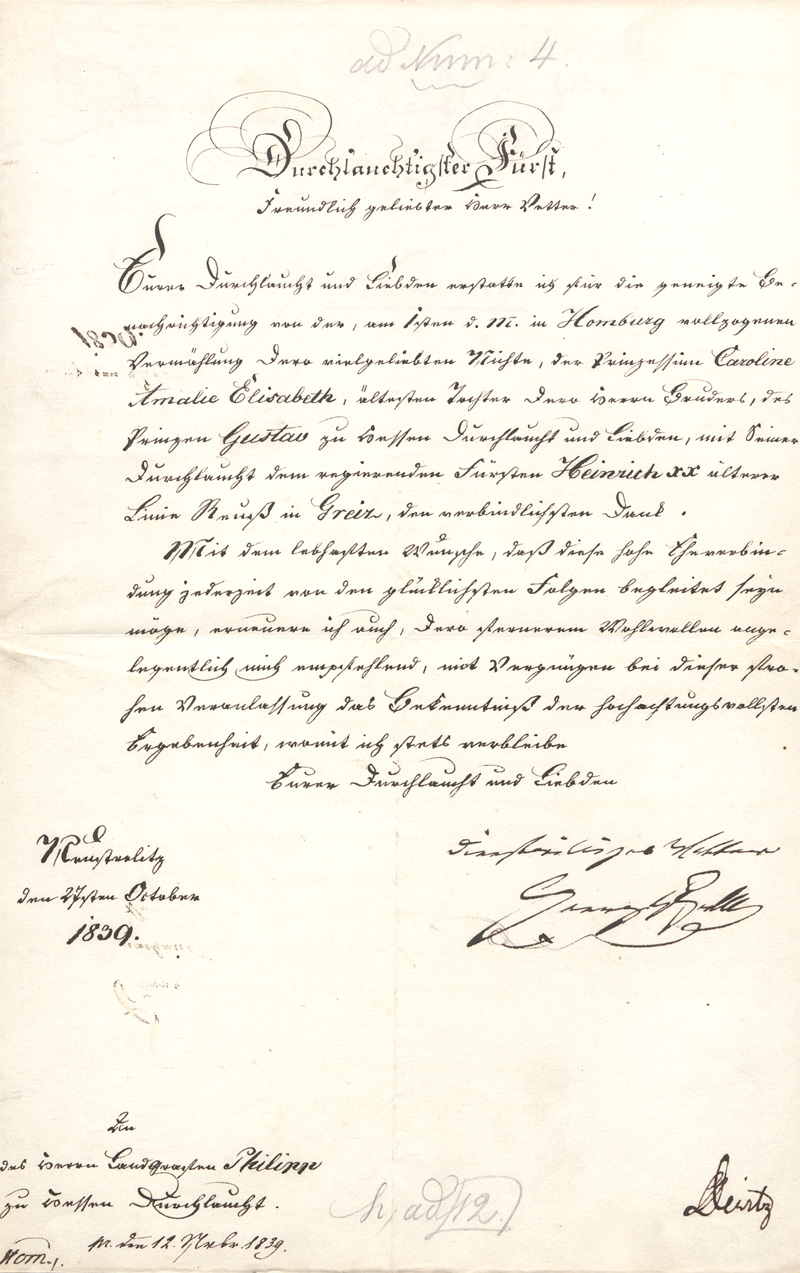 ad Num: 4.
Durchlauchtigster Fürst,
Freundlich geliebter Herr Vetter!
Eurer Durchlaucht und Liebden erstatte ich für die geneigte Be-
nachrichtigung von der, am 1sten d. M. in Homburg vollzogenen
Vermählung Dero vielgeliebten Nichte, der Prinzessin Caroline
Amalie Elisabeth, ältesten Tochter Dero Herrn Bruders, des
Prinzen Gustav zu Hessen Durchlaucht und Liebden, mit Seiner
Durchlaucht dem regierenden Fürsten Heinrich XX älterer
Linie Reuß in Greiz, den verbindlichsten Dank.
Mit dem lebhaften Wunsche, daß diese hohe Eheverbin-
dung jederzeit von den glücklichsten Folgen begleitet seyn
möge, erneuere ich auch, Dero fernerem Wohlwollen ange-
legentlich mich empfehlend, mit Vergnügen bei dieser fro-
hen Veranlassung das Bekenntniß der hochachtungsvollsten
Ergebenheit, womit ich stets verbleibe
Eurer Durchlaucht und Liebden
Neustrelitz
den 27sten October
1839.
dienstwilliger Vetter
Georg
An
des Herrn Landgrafen Philipp
zu Hessen Durchlaucht.
den 12. Nvbr. 1839.
Hom.
ad 12.